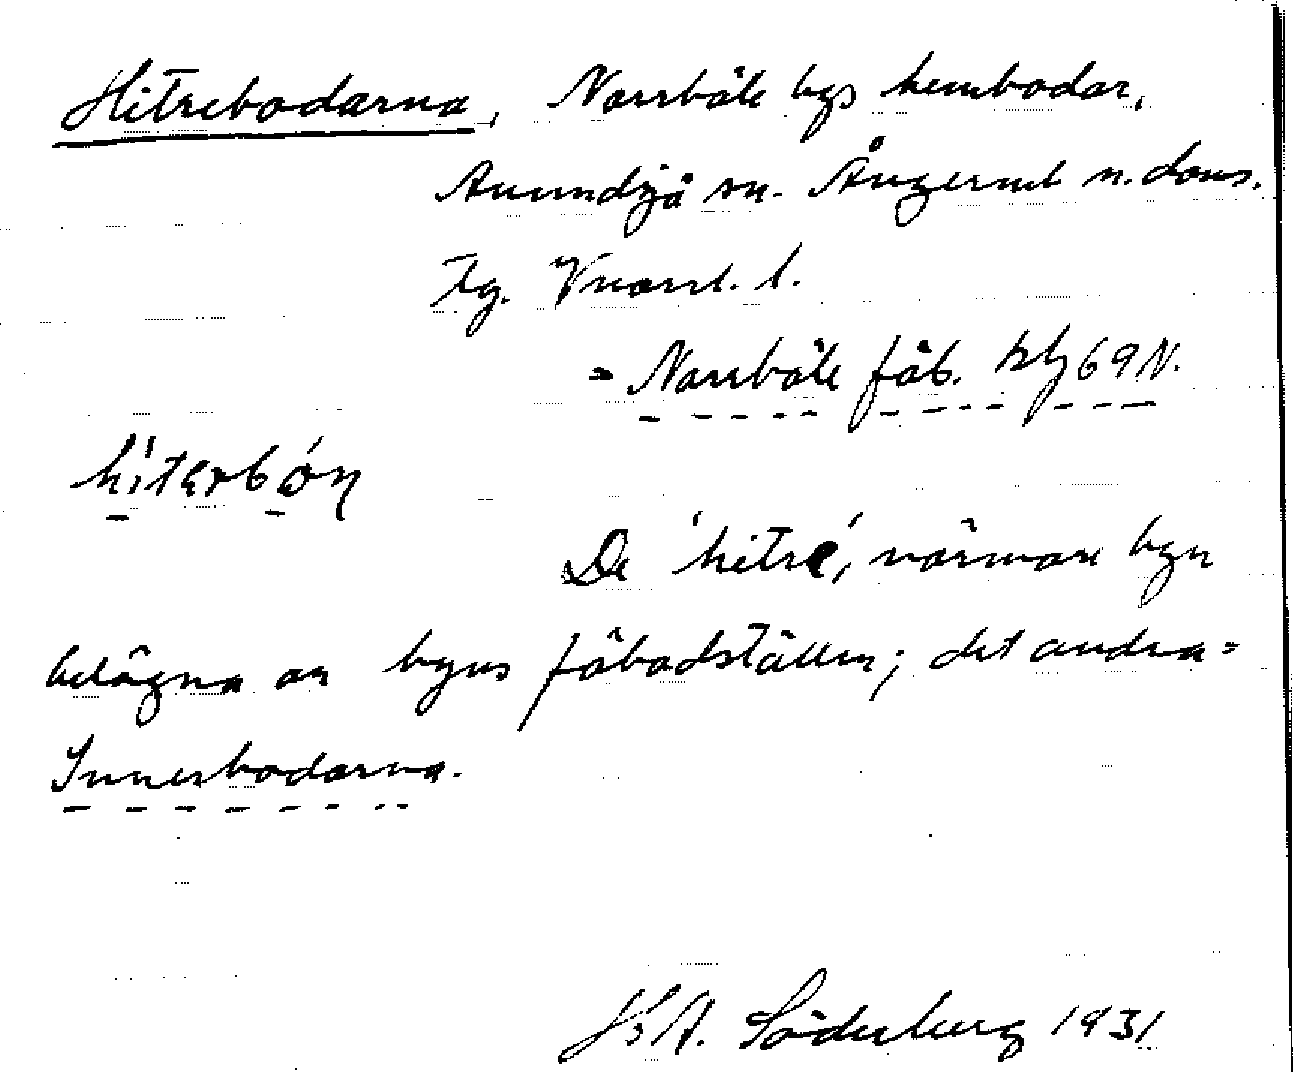 Hitrebodarna, Norrböle bys hembodar,
Anundsjö sn. Ångerml n. doms.
Tg. Vnorrl. l.
= Norrböle fäb. kbl 69 N.
De 'hitre', närmare byn
belägna av byns fäbodställen; det andra =
Innerbodarna.
K. A. Söderberg 1931